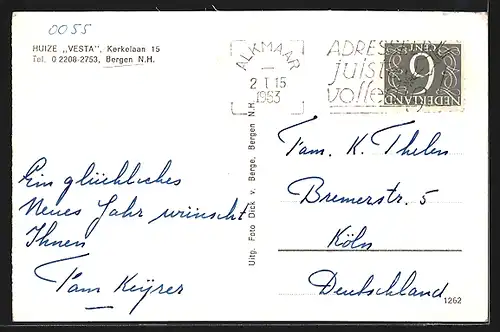 0055
HUIZE „VESTA”, Kerkelaan 15
Tel. 0 2208-2753, Bergen N.H.
ALKMAAR
2 I 15
1963
ADRES
juist
volle
NEDERLAND
6
CENT
Ein glückliches
Neues Jahr wünscht
Ihnen
Fam Keyzer
Uitg. Foto Dick v. Berge, Bergen N.H.
Fam. K. Thelen
Bremerstr. 5
Köln
Deutschland
1262